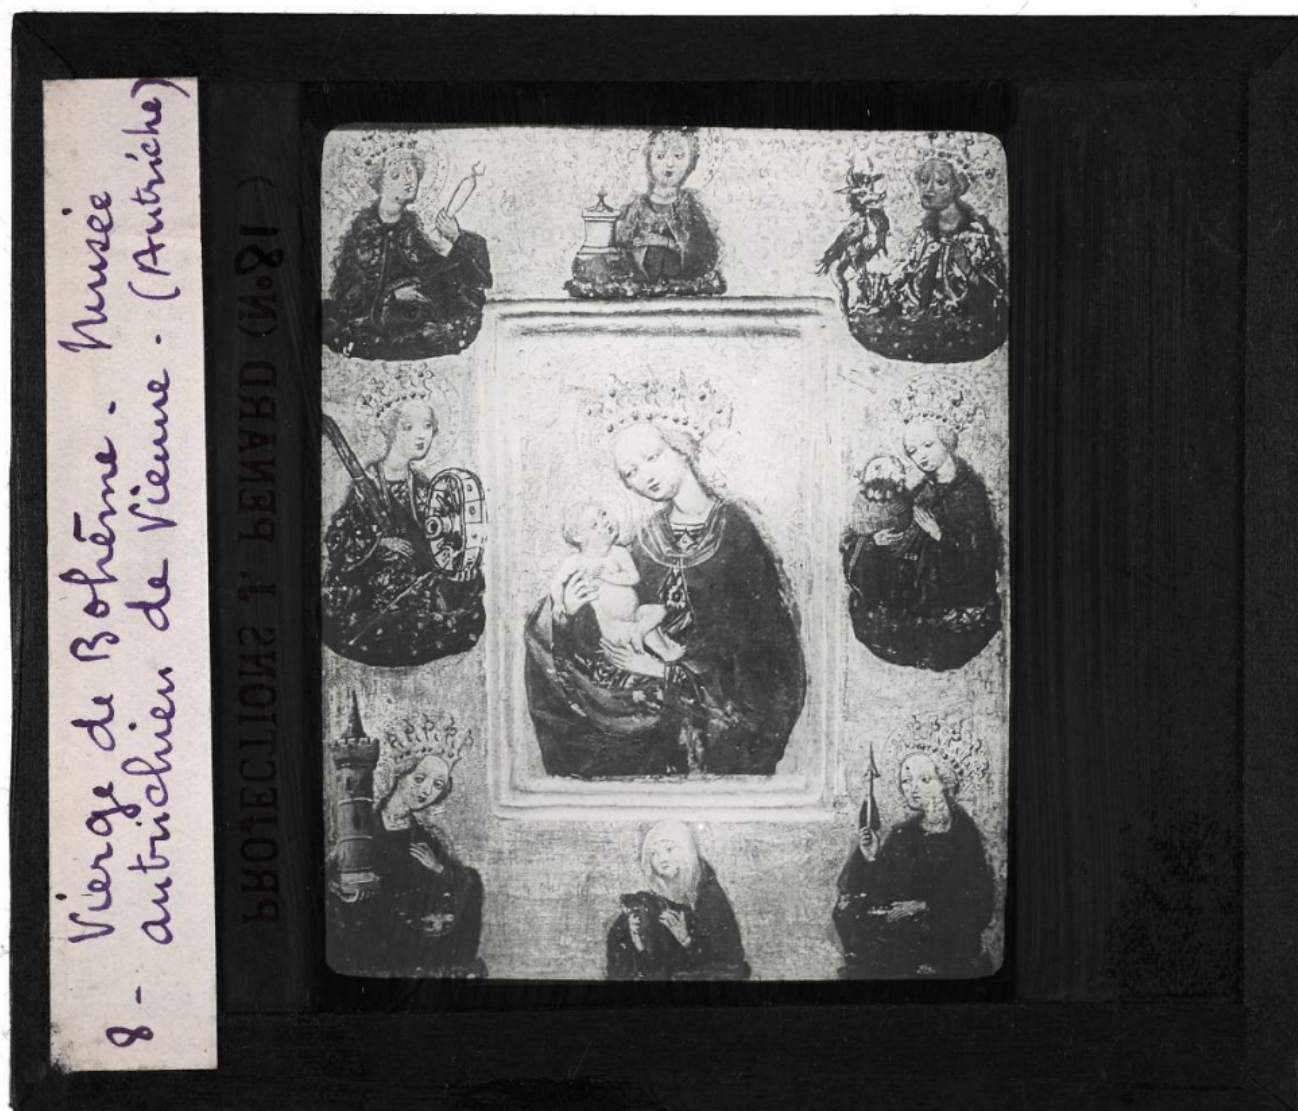 8 - Vierge de Bohême. Musée
autrichien de Vienne. (Autriche)
PROJECTIONS J. PENARD (N°81 )